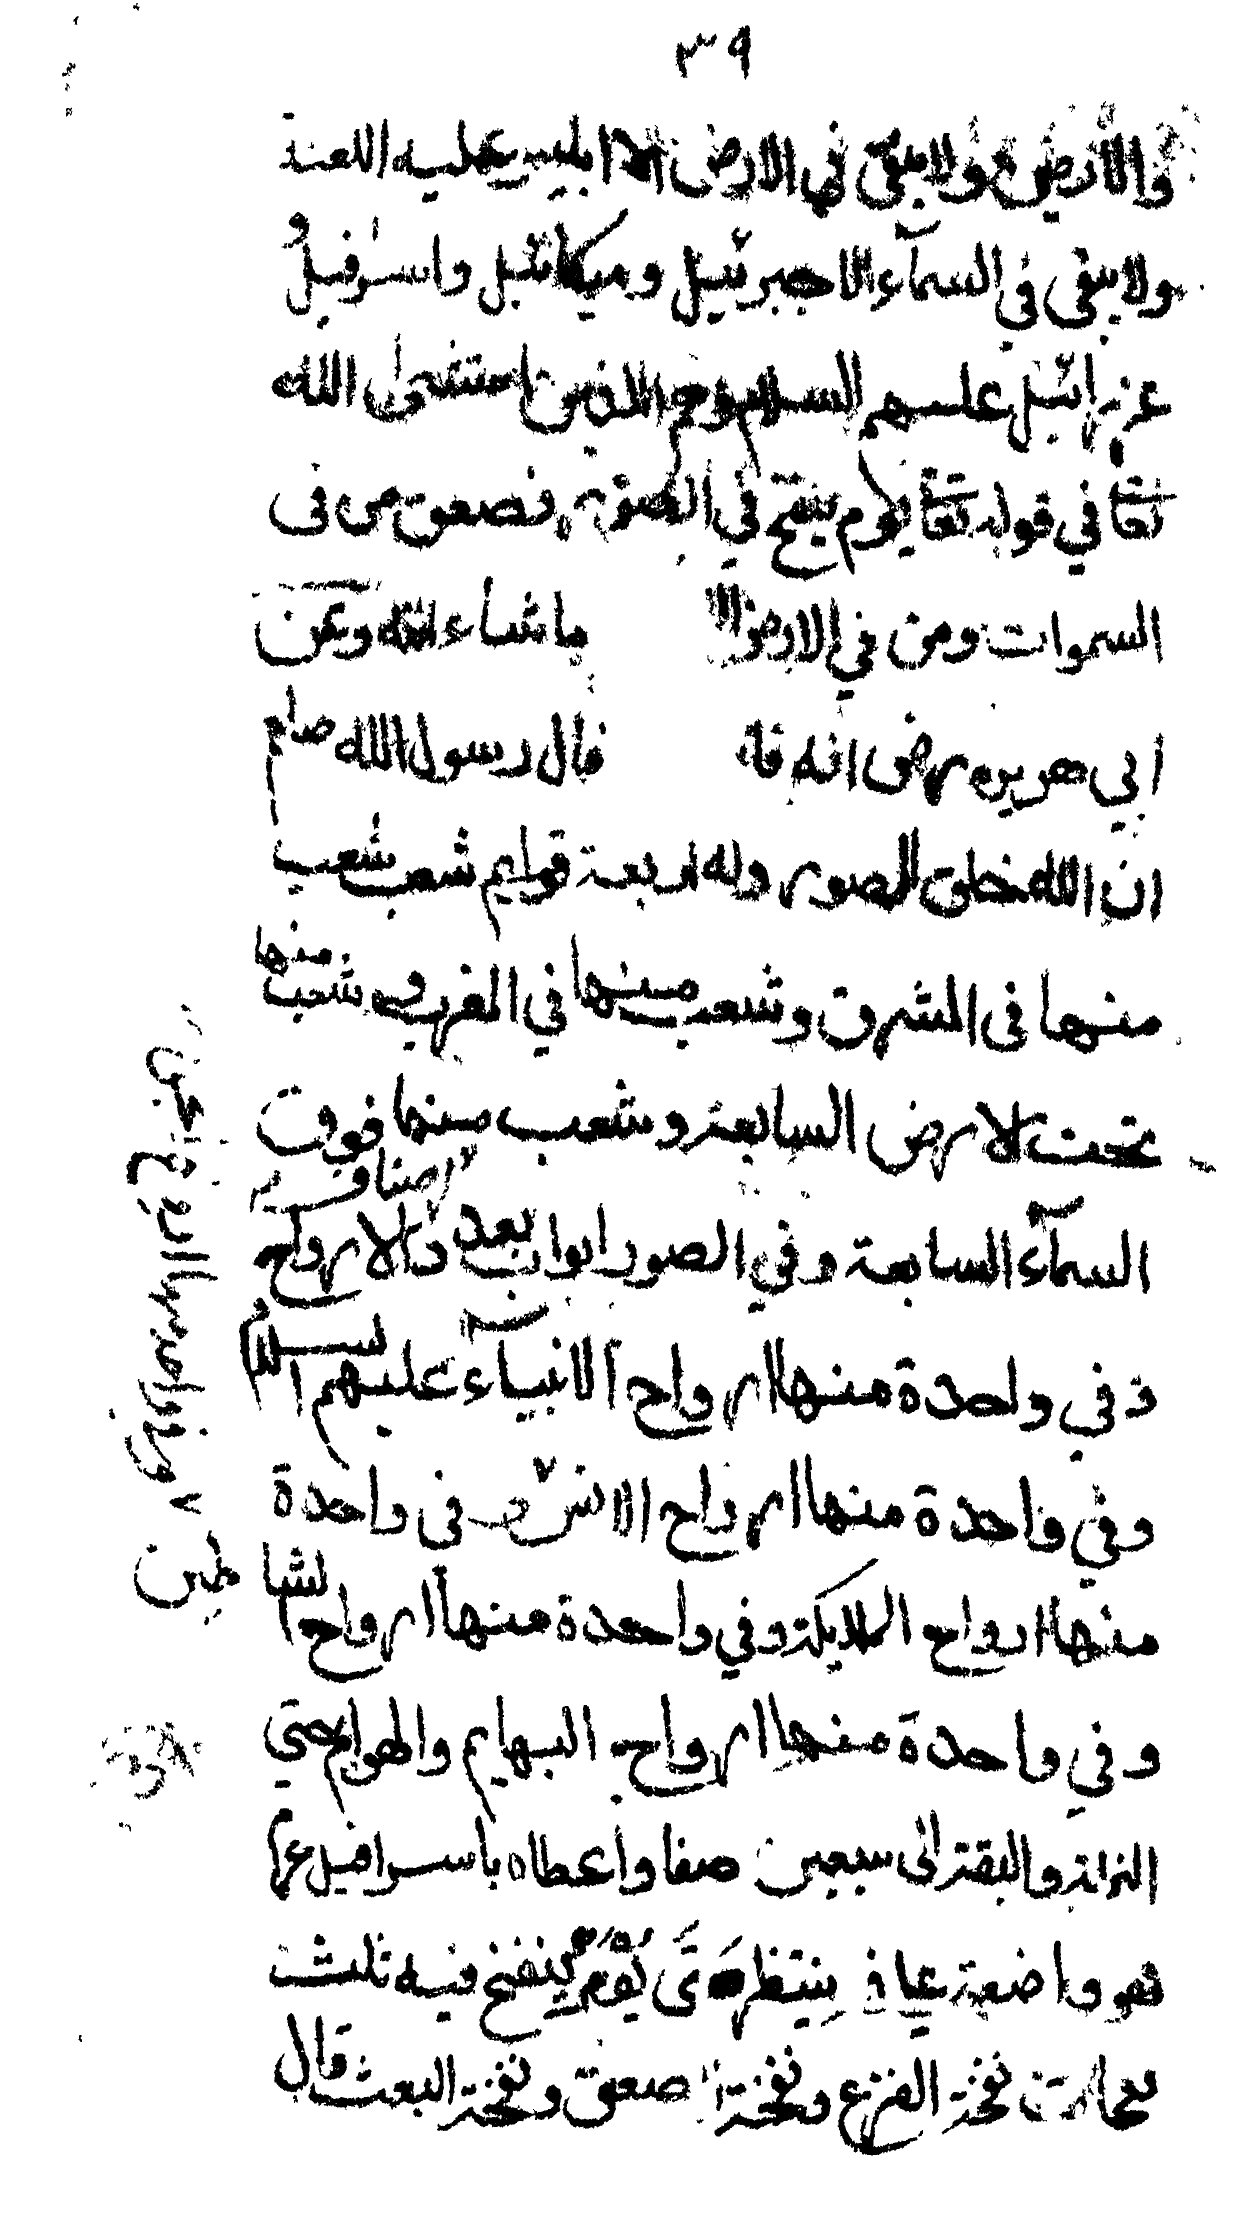 ٣٩
والارض ولا يبقى في الارض الا ابليس عليه اللعنة
ولا يبقى في السمآء الا جبرئيل وميكائيل واسرفيل و
عزرائيل عليهم السلام وهم الذين استثنى الله
تعا في قوله تعا يوم ينفخ في الصور فصعق من في
السموات ومن في الارض الا ما شاء الله وعن
ابي هريره رضي انه قا قال رسول الله صلعم
ان الله خلق الصور وله اربعة قوايم شعب شعب
منها في المشرق وشعب منها في المغرب وشعب منها
تحت الارض السابعة وشعب منها فوق
السمآء السابعة وفي الصور ابواب بعدد الارواح
اصناف
وفي واحدة منها ارواح الانبيآء عليهم السلام
وفي واحدة منها ارواح الانس وفي واحدة
منها ارواح الملايكة وفي واحدة منها ارواح الشياطين
وفي واحدة منها ارواح البهايم والهوام حتى
النملة والبقة الى سبعين صفا واعطاه باسرافيل عم
فهو واضعة على في ينتظر متى يؤمر ينفخ فيه ثلث
نفخة الفزع ونفخة صعق ونفخة البعث قال
وفي واحدة منها ارواح الجن